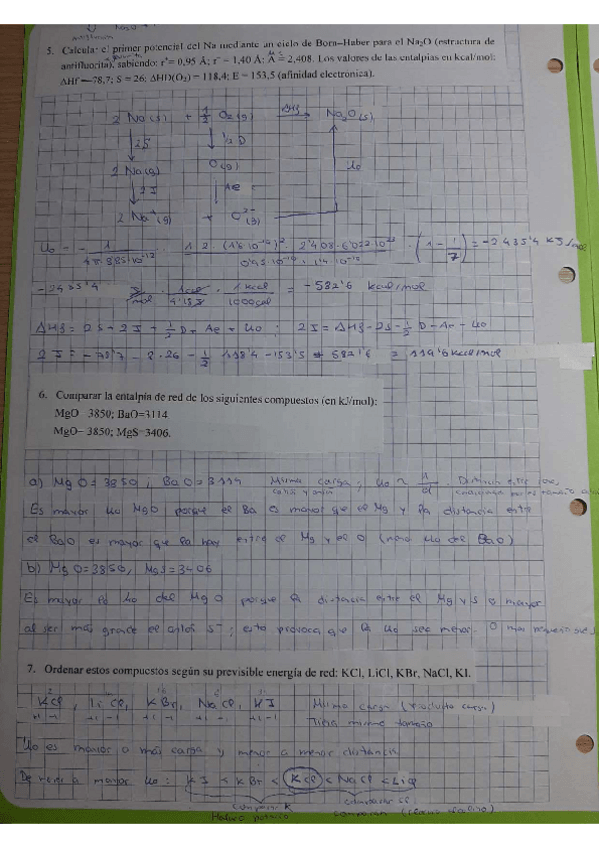 5. Calcula: el primer potencial del Na mediante un ciclo de Born-Haber para el Na₂O (estructura de
antifluorita), sabiendo: r⁺= 0,95 Å; r⁻ = 1,40 Å; A = 2,408. Los valores de las entalpías en kcal/mol:
ΔHf = -78,7; S = 26; ΔHD(O₂) = 118,4; E = 153,5 (afinidad electrónica).
2 Na(s) + ½ O₂(g) ΔHf Na₂O(s)
2S ½ D
2 Na(g) O(g) Uo
2 I Ae
2 Na⁺(g) + O²⁻(g)
Uo = - 1 / 4π · 8'85·10⁻¹² · 1·2·(1'6·10⁻¹⁹)²·2'408·6'022·10²³ / 0'95·10⁻¹⁰ + 1'4·10⁻¹⁰ · (1 - 1/7) = -2435'4 KJ/mol
-2435'4 /mol · 1 cal / 4'18 J · 1 kcal / 1000 cal = -582'6 kcal/mol
ΔHf = 2S + 2I + ½ D + Ae + Uo ; 2I = ΔHf - 2S - ½ D - Ae - Uo
2I = -78'7 - 2·26 - ½ 118'4 - 153'5 + 582'6 = 119'6 kcal/mol
6. Comparar la entalpía de red de los siguientes compuestos (en kJ/mol):
MgO 3850; BaO=3114
MgO= 3850; MgS=3406.
a) MgO = 3850, BaO = 3114 Misma carga, Uo ~ 1/d
Es mayor Uo MgO porque el Ba es mayor que el Mg y la distancia entre
el BaO es mayor que la hay entre el Mg y el O (menor Uo del BaO)
b) MgO=3850, MgS=3406
Es mayor la Uo del MgO porque la distancia entre el Mg y S es mayor
al ser más grande el anión S⁻; esto provoca que la Uo sea menor. O más pequeño que S
7. Ordenar estos compuestos según su previsible energía de red: KCl, LiCl, KBr, NaCl, KI.
KCl, LiCl, KBr, NaCl, KI Misma carga (producto cargas)
+1 -1 +1 -1 +1 -1 +1 -1 +1 -1 mismo tamaño
Uo es mayor a más carga y menor a menor distancia
De menor a mayor Uo: KI < KBr < KCl < NaCl < LiCl
comparten K comparten Cl